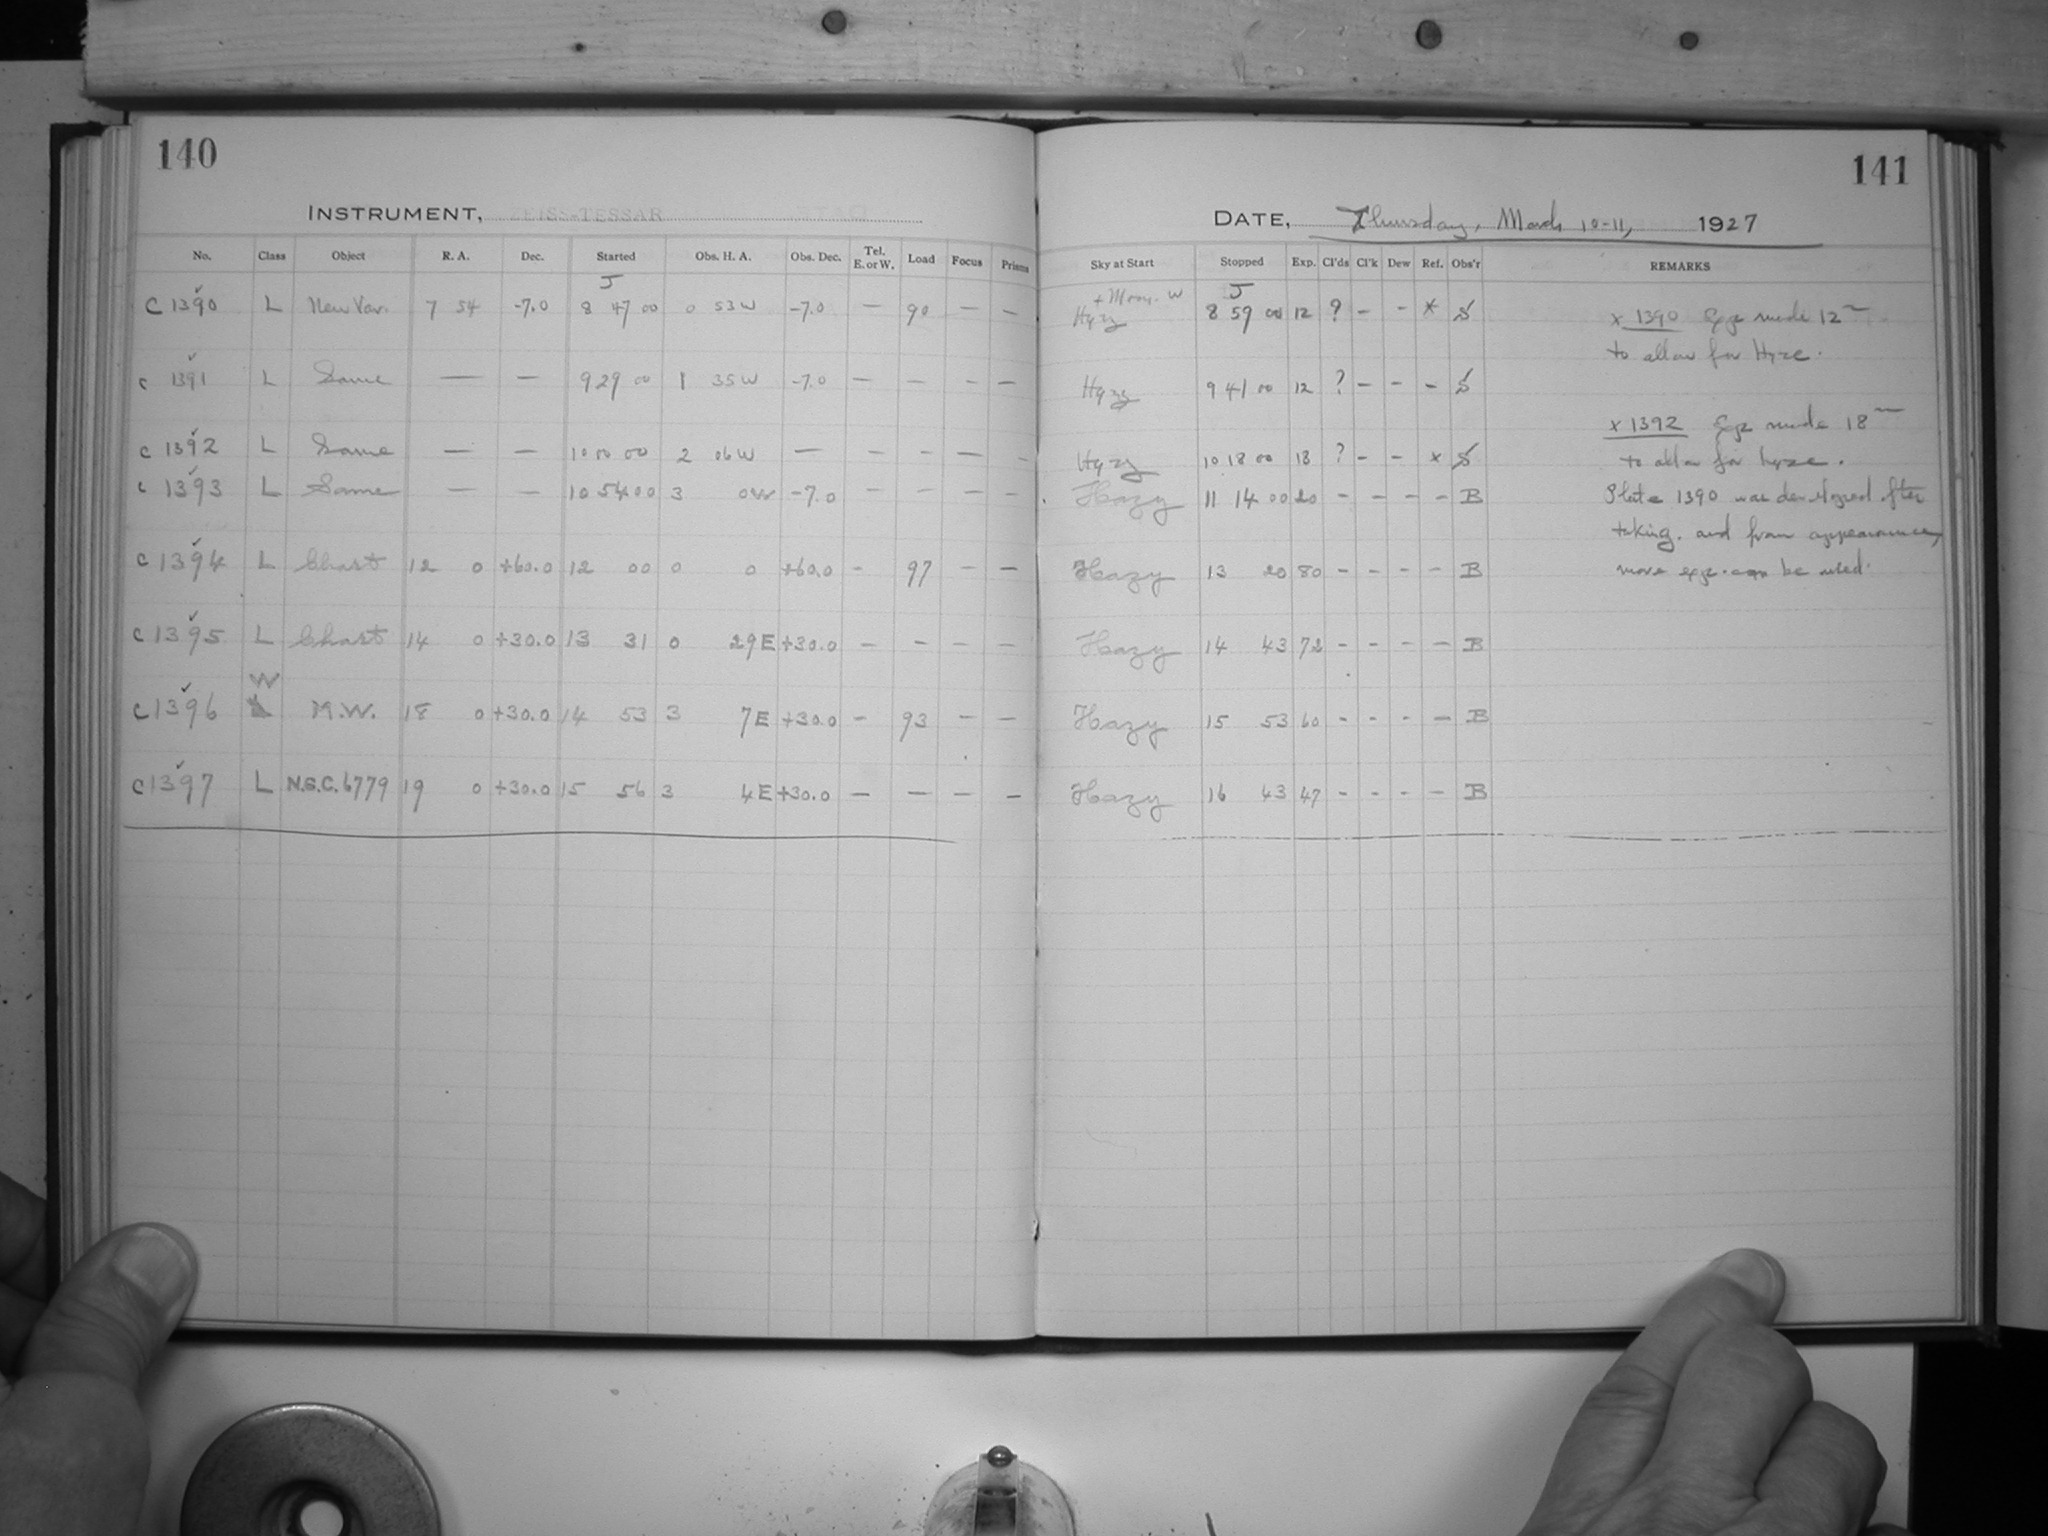 140
INSTRUMENT, ZEISS-TESSAR
No. Class Object R. A. Dec. Started Obs. H. A. Obs. Dec. Tel. E. or W. Load Focus Prisms
J
C 1390 ✓ L New Var. 7 54 -7.0 8 47 00 0 53 W -7.0 — 90 — —
c 1391 ✓ L Same — — 9 29 00 1 35 W -7.0 — — — —
c 1392 ✓ L Same — — 10 00 00 2 06 W — — — — —
c 1393 ✓ L Same — — 10 54 00 3 0 W -7.0 — — — —
c 1394 ✓ L Chart 12 0 +60.0 12 00 0 0 +60.0 - 97 — —
c 1395 ✓ L Chart 14 0 +30.0 13 31 0 29 E +30.0 — — — —
W
c 1396 ✓ M.W. 18 0 +30.0 14 53 3 7 E +30.0 — 93 — —
c 1397 ✓ L N.G.C. 6779 19 0 +30.0 15 56 3 4 E +30.0 — — — —
141
DATE, Thursday, March 10-11, 1927
Sky at Start Stopped Exp. Cl'ds Cl'k Dew Ref. Obs'r REMARKS
+ Moon. W J
Hazy 8 59 00 12 ? — - * S
Hazy 9 41 00 12 ? - - - S
Hazy 10 18 00 18 ? - - x S
Hazy 11 14 00 20 - - - - B
Hazy 13 20 80 - - - - B
Hazy 14 43 72 - - - - B
Hazy 15 53 60 - - - - B
Hazy 16 43 47 - - - - B
x 1390 Exp made 12m
to allow for Haze.
x 1392 Exp made 18m
to allow for haze.
Plate 1390 was developed after
taking. and from appearance,
more exp. can be used.